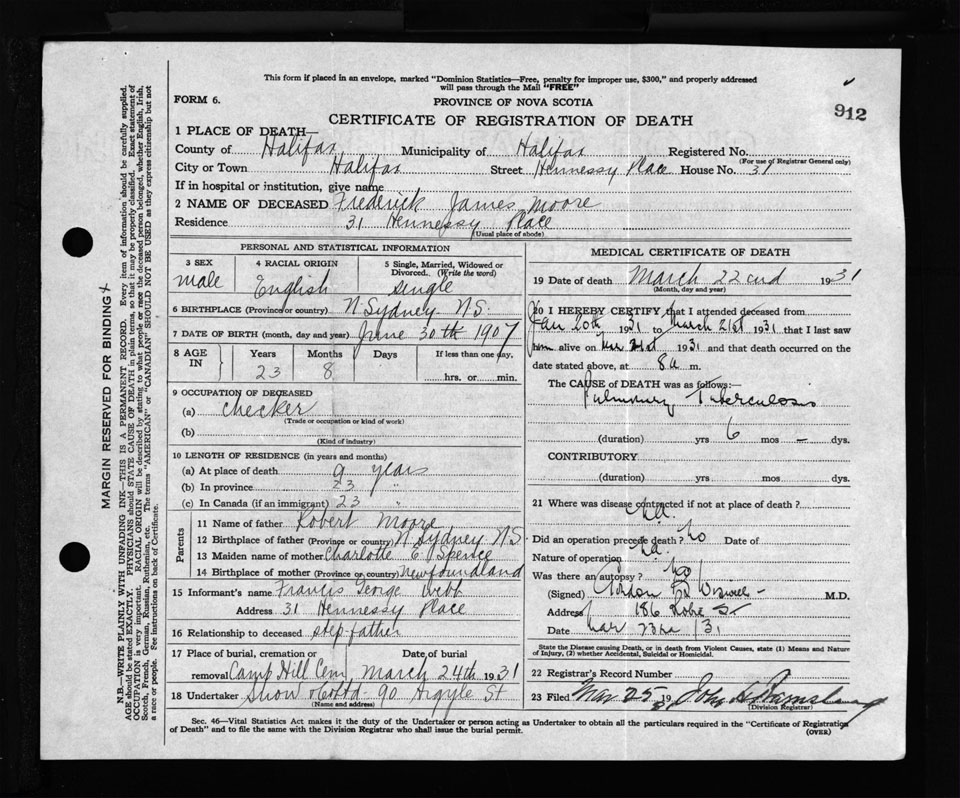 This form if placed in an envelope, marked "Dominion Statistics—Free, penalty for improper use, $300," and properly addressed
will pass through the Mail "FREE"
912
FORM 6.
PROVINCE OF NOVA SCOTIA
CERTIFICATE OF REGISTRATION OF DEATH
1 PLACE OF DEATH—
County of Halifax Municipality of Halifax Registered No.
(For use of Registrar General only)
City or Town Halifax Street Hennessy Place House No. 31
If in hospital or institution, give name
2 NAME OF DECEASED Frederick James Moore
Residence 31 Hennessy Place
(Usual place of abode)
PERSONAL AND STATISTICAL INFORMATION
3 SEX 4 RACIAL ORIGIN 5 Single, Married, Widowed or Divorced. (Write the word)
male English single
6 BIRTHPLACE (Province or country) N. Sydney N.S.
7 DATE OF BIRTH (month, day and year) June 30th 1907
8 AGE IN Years Months Days If less than one day,
23 8 hrs. or min.
9 OCCUPATION OF DECEASED
(a) Checker
(Trade or occupation or kind of work)
(b)
(Kind of industry)
10 LENGTH OF RESIDENCE (in years and months)
(a) At place of death 9 years
(b) In province 23 "
(c) In Canada (if an immigrant) 23 "
Parents
11 Name of father Robert Moore
12 Birthplace of father (Province or country) N. Sydney N.S.
13 Maiden name of mother Charlotte E. Spence
14 Birthplace of mother (Province or country) Newfoundland
15 Informant's name Francis George Webb
Address 31 Hennessy Place
16 Relationship to deceased step-father
17 Place of burial, cremation or Date of burial
removal Camp Hill Cem March 24th 1931
18 Undertaker Snow & Co Ltd - 90 Argyle St
(Name and address)
MEDICAL CERTIFICATE OF DEATH
19 Date of death March 22nd 1931
(Month, day and year)
20 I HEREBY CERTIFY that I attended deceased from
Jan 20th 1931 to March 21st 1931 that I last saw
him alive on Mar 21st 1931 and that death occurred on the
date stated above, at 8 a m.
The CAUSE of DEATH was as follows:—
Pulmonary Tuberculosis
(duration) yrs 6 mos – dys.
CONTRIBUTORY
(duration) yrs mos dys.
21 Where was disease contracted if not at place of death?
Did an operation precede death? no Date of
Nature of operation
Was there an autopsy? no
(Signed) Gordon M.D.
Address 186 St
Date Mar 23rd / 31
State the Disease causing Death, or in death from Violent Causes, state (1) Means and Nature
of Injury, (2) whether Accidental, Suicidal or Homicidal.
22 Registrar's Record Number
23 Filed Mar 25, 19 John
(Division Registrar)
Sec. 46—Vital Statistics Act makes it the duty of the Undertaker or person acting as Undertaker to obtain all the particulars required in the "Certificate of Registration
of Death" and to file the same with the Division Registrar who shall issue the burial permit.
(OVER)
MARGIN RESERVED FOR BINDING
N.B.—WRITE PLAINLY WITH UNFADING INK—THIS IS A PERMANENT RECORD. Every item of information should be carefully supplied.
AGE should be stated EXACTLY. PHYSICIANS should STATE CAUSE OF DEATH in plain terms, so that it may be properly classified. Exact statement of
OCCUPATION is very important. RACIAL ORIGIN will be described by stating to what people or race the deceased person belonged, whether English, Irish,
Scotch, French, German, Russian, Ruthenian, etc. The terms "AMERICAN" or "CANADIAN" SHOULD NOT BE USED as they express citizenship but not
a race or people. See instructions on back of Certificate.